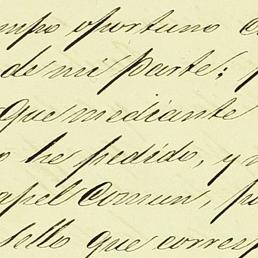 mpo oportuno
de mi parte;
Que mediante
o he pedido, y
apel Comun, po
sello que corresp